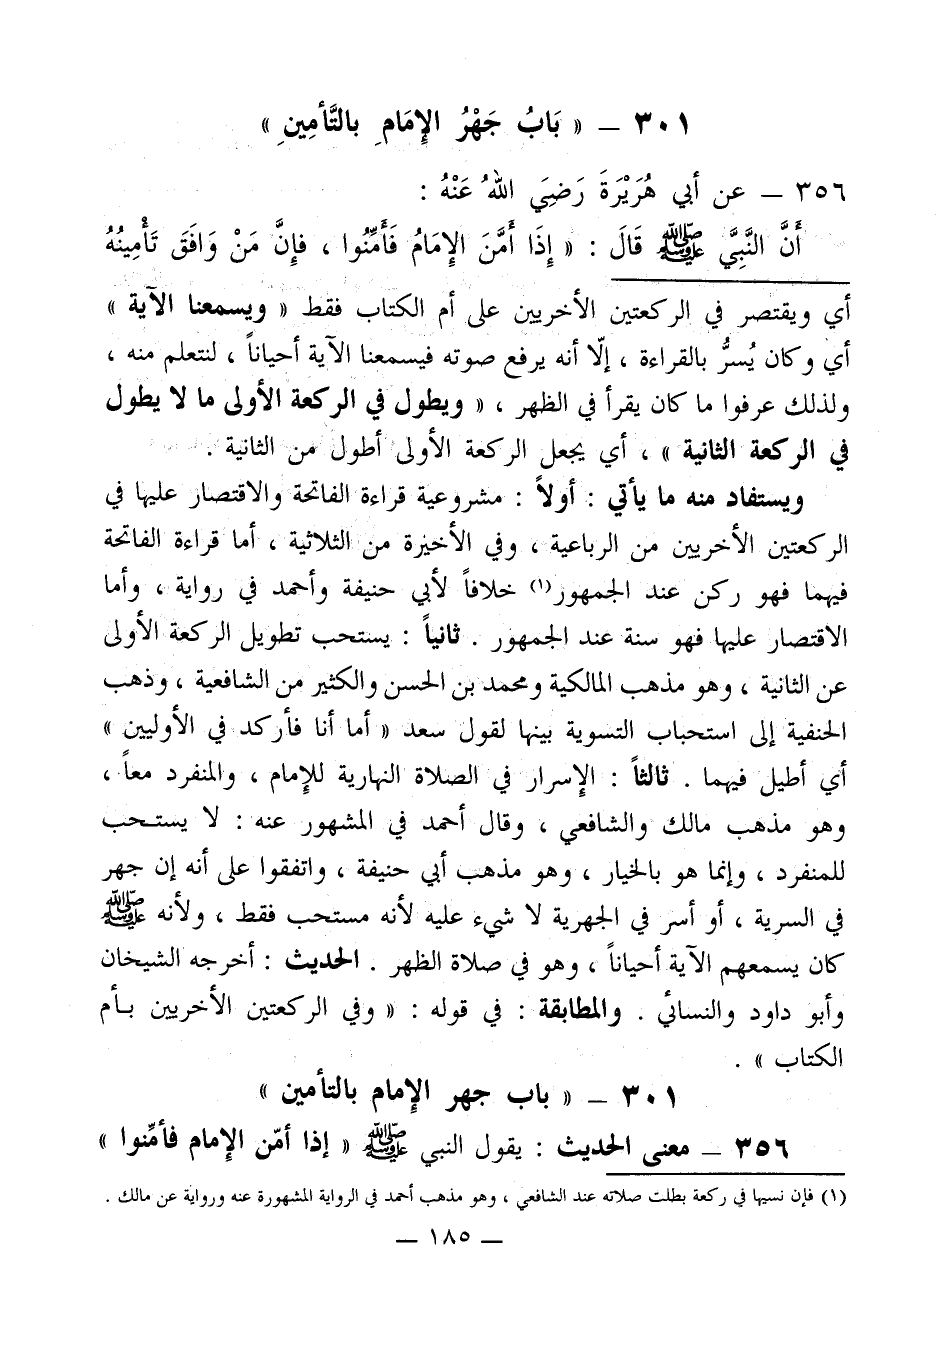 ٣٠١ ـ « بَابُ جَهْرُ الإِمَامِ بالتَّأمِينِ »
٣٥٦ ـ عن أبي هُرَيْرَةَ رَضِيَ اللهُ عَنْهُ :
أَنَّ النَّبِيَّ ﷺ قَالَ : « إِذَا أَمَّنَ الإِمَامُ فَأَمِّنُوا ، فإِنَّ مَنْ وَافَقَ تَأْمِينُهُ
أي ويقتصر في الركعتين الأخريين على أم الكتاب فقط « ويسمعنا الآية »
أي وكان يُسرُّ بالقراءة ، إلّا أنه يرفع صوته فيسمعنا الآية أحياناً ، لنتعلم منه ،
ولذلك عرفوا ما كان يقرأ في الظهر ، « ويطول في الركعة الأولى ما لا يطول
في الركعة الثانية » ، أي يجعل الركعة الأولى أطول من الثانية .
ويستفاد منه ما يأتي : أولاً : مشروعية قراءة الفاتحة والاقتصار عليها في
الركعتين الأخريين من الرباعية ، وفي الأخيرة من الثلاثية ، أما قراءة الفاتحة
فيهما فهو ركن عند الجمهور(١) خلافاً لأبي حنيفة وأحمد في رواية ، وأما
الاقتصار عليها فهو سنة عند الجمهور . ثانياً : يستحب تطويل الركعة الأولى
عن الثانية ، وهو مذهب المالكية ومحمد بن الحسن والكثير من الشافعية ، وذهب
الحنفية إلى استحباب التسوية بينها لقول سعد « أما أنا فأركد في الأوليين »
أي أطيل فيهما . ثالثاً : الإسرار في الصلاة النهارية للإمام ، والمنفرد معاً ،
وهو مذهب مالك والشافعي ، وقال أحمد في المشهور عنه : لا يستحب
للمنفرد ، وإنما هو بالخيار ، وهو مذهب أبي حنيفة ، واتفقوا على أنه إن جهر
في السرية ، أو أسر في الجهرية لا شيء عليه لأنه مستحب فقط ، ولأنه ﷺ
كان يسمعهم الآية أحياناً ، وهو في صلاة الظهر . الحديث : أخرجه الشيخان
وأبو داود والنسائي . والمطابقة : في قوله : « وفي الركعتين الأخريين بأم
الكتاب » .
٣٠١ ـ « باب جهر الإمام بالتأمين »
٣٥٦ ـ معنى الحديث : يقول النبي ﷺ « إذا أمّن الإمام فأمِّنوا »
(١) فإن نسيها في ركعة بطلت صلاته عند الشافعي ، وهو مذهب أحمد في الرواية المشهورة عنه ورواية عن مالك .
ـ ١٨٥ ـ